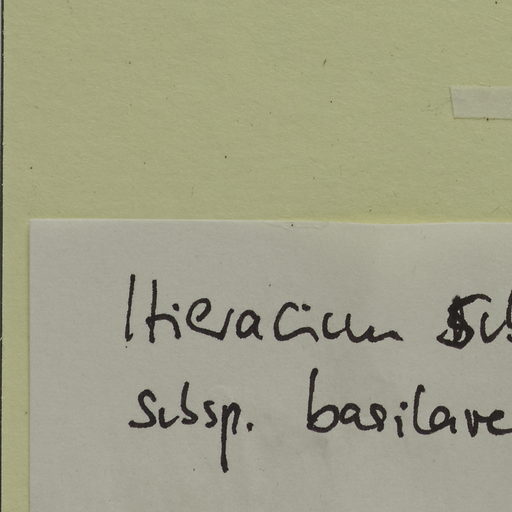 Hieracium sub
subsp. basilare